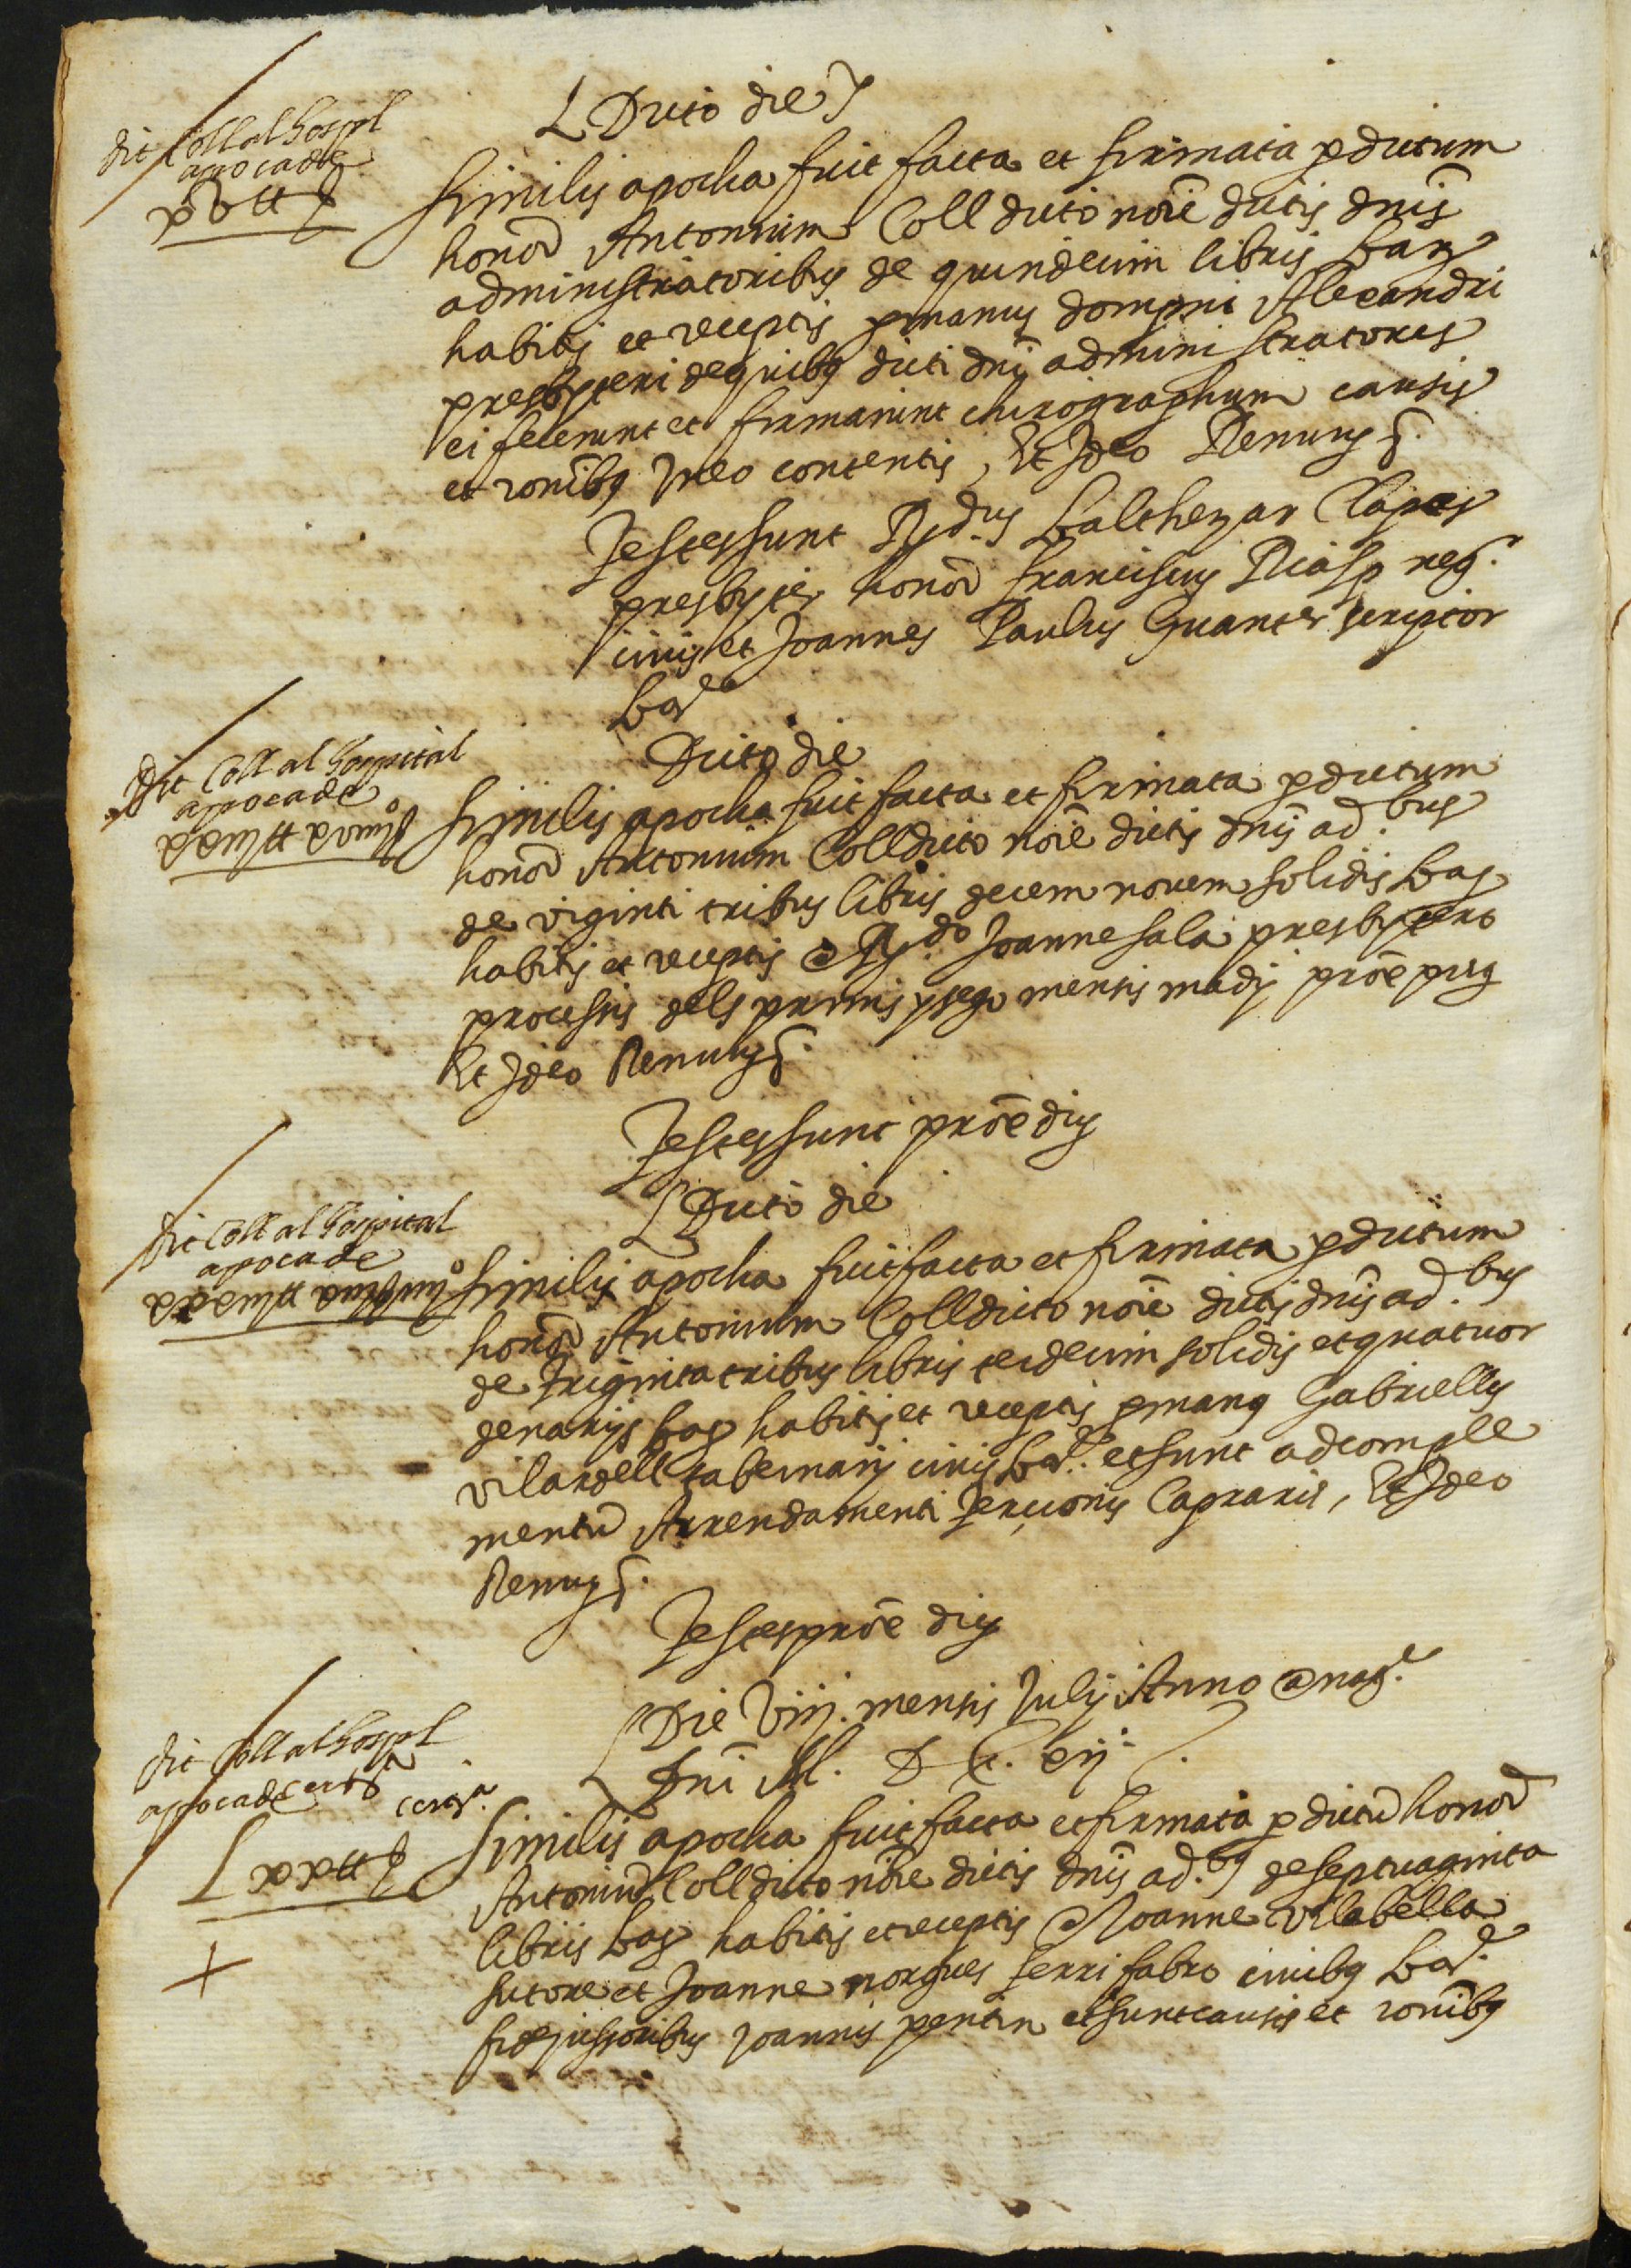 Dicto die
dit Coll al hospl
apoca de
xv ll s
Similis apocha fuit facta et firmata p dictum
honor Antonium Coll dicto noie dictis dnis
administratoribus de quindecim libris bar
habitis et receptis p manus dompni Alexandri
presbyteri de quibus dicti dni administratores
ei fecerunt et firmarunt chirographum causis
et ronibus in eo contentis, Et Ideo Renuns
Testes sunt Rdus Balthezar Clapes
presbyter honor franciscus Riasp neg.
civis et Joannes Paulus Guanter scriptor
Bar
Dicto die
dit Coll al hospital
apoca de
xxiij ll xviiij s
Similis apocha fuit facta et firmata p dictum
honor Antonium Coll dicto noie dictis dnis ad.bus
de viginti tribus libris decem novem solidis bar
habitis et receptis a Rdo Joanne sala presbytero
processis dels primis y sego mensis madij prõe prig
Et Ideo Renuns
Testes sunt prõe dig
Dicto die
dit Coll al hospital
apoca de
xxxiij ll
Similis apocha fuit facta et firmata p dictum
honor Antonium Coll dicto noie dictis dnis ad.bus
de Triginta tribus libris tredecim solidis et quatuor
denarijs bar habitis et receptis p manus Gabriellis
vilardell tabernarij civis Bar. et sunt ad comple
mentu Arrendamenti Tercionis Capraris, Et Ideo
Renuns
Testes prõe dig
Die Viij. mensis Julij Anno a nat.
Dni M. D C. xij
dit Coll al hospl
apoca de
Lxx ll s
Similis apocha fuit facta et firmata p dictu honor
Antoniu Coll dicto noie dictis dnis ad.bus de septuaginta
libris bar habitis et receptis a Joanne vilabella
sutore et Joanne norgues ferri fabro civibus Bar.
fidejussoribus Joannis pentin et sunt causis et ronibus